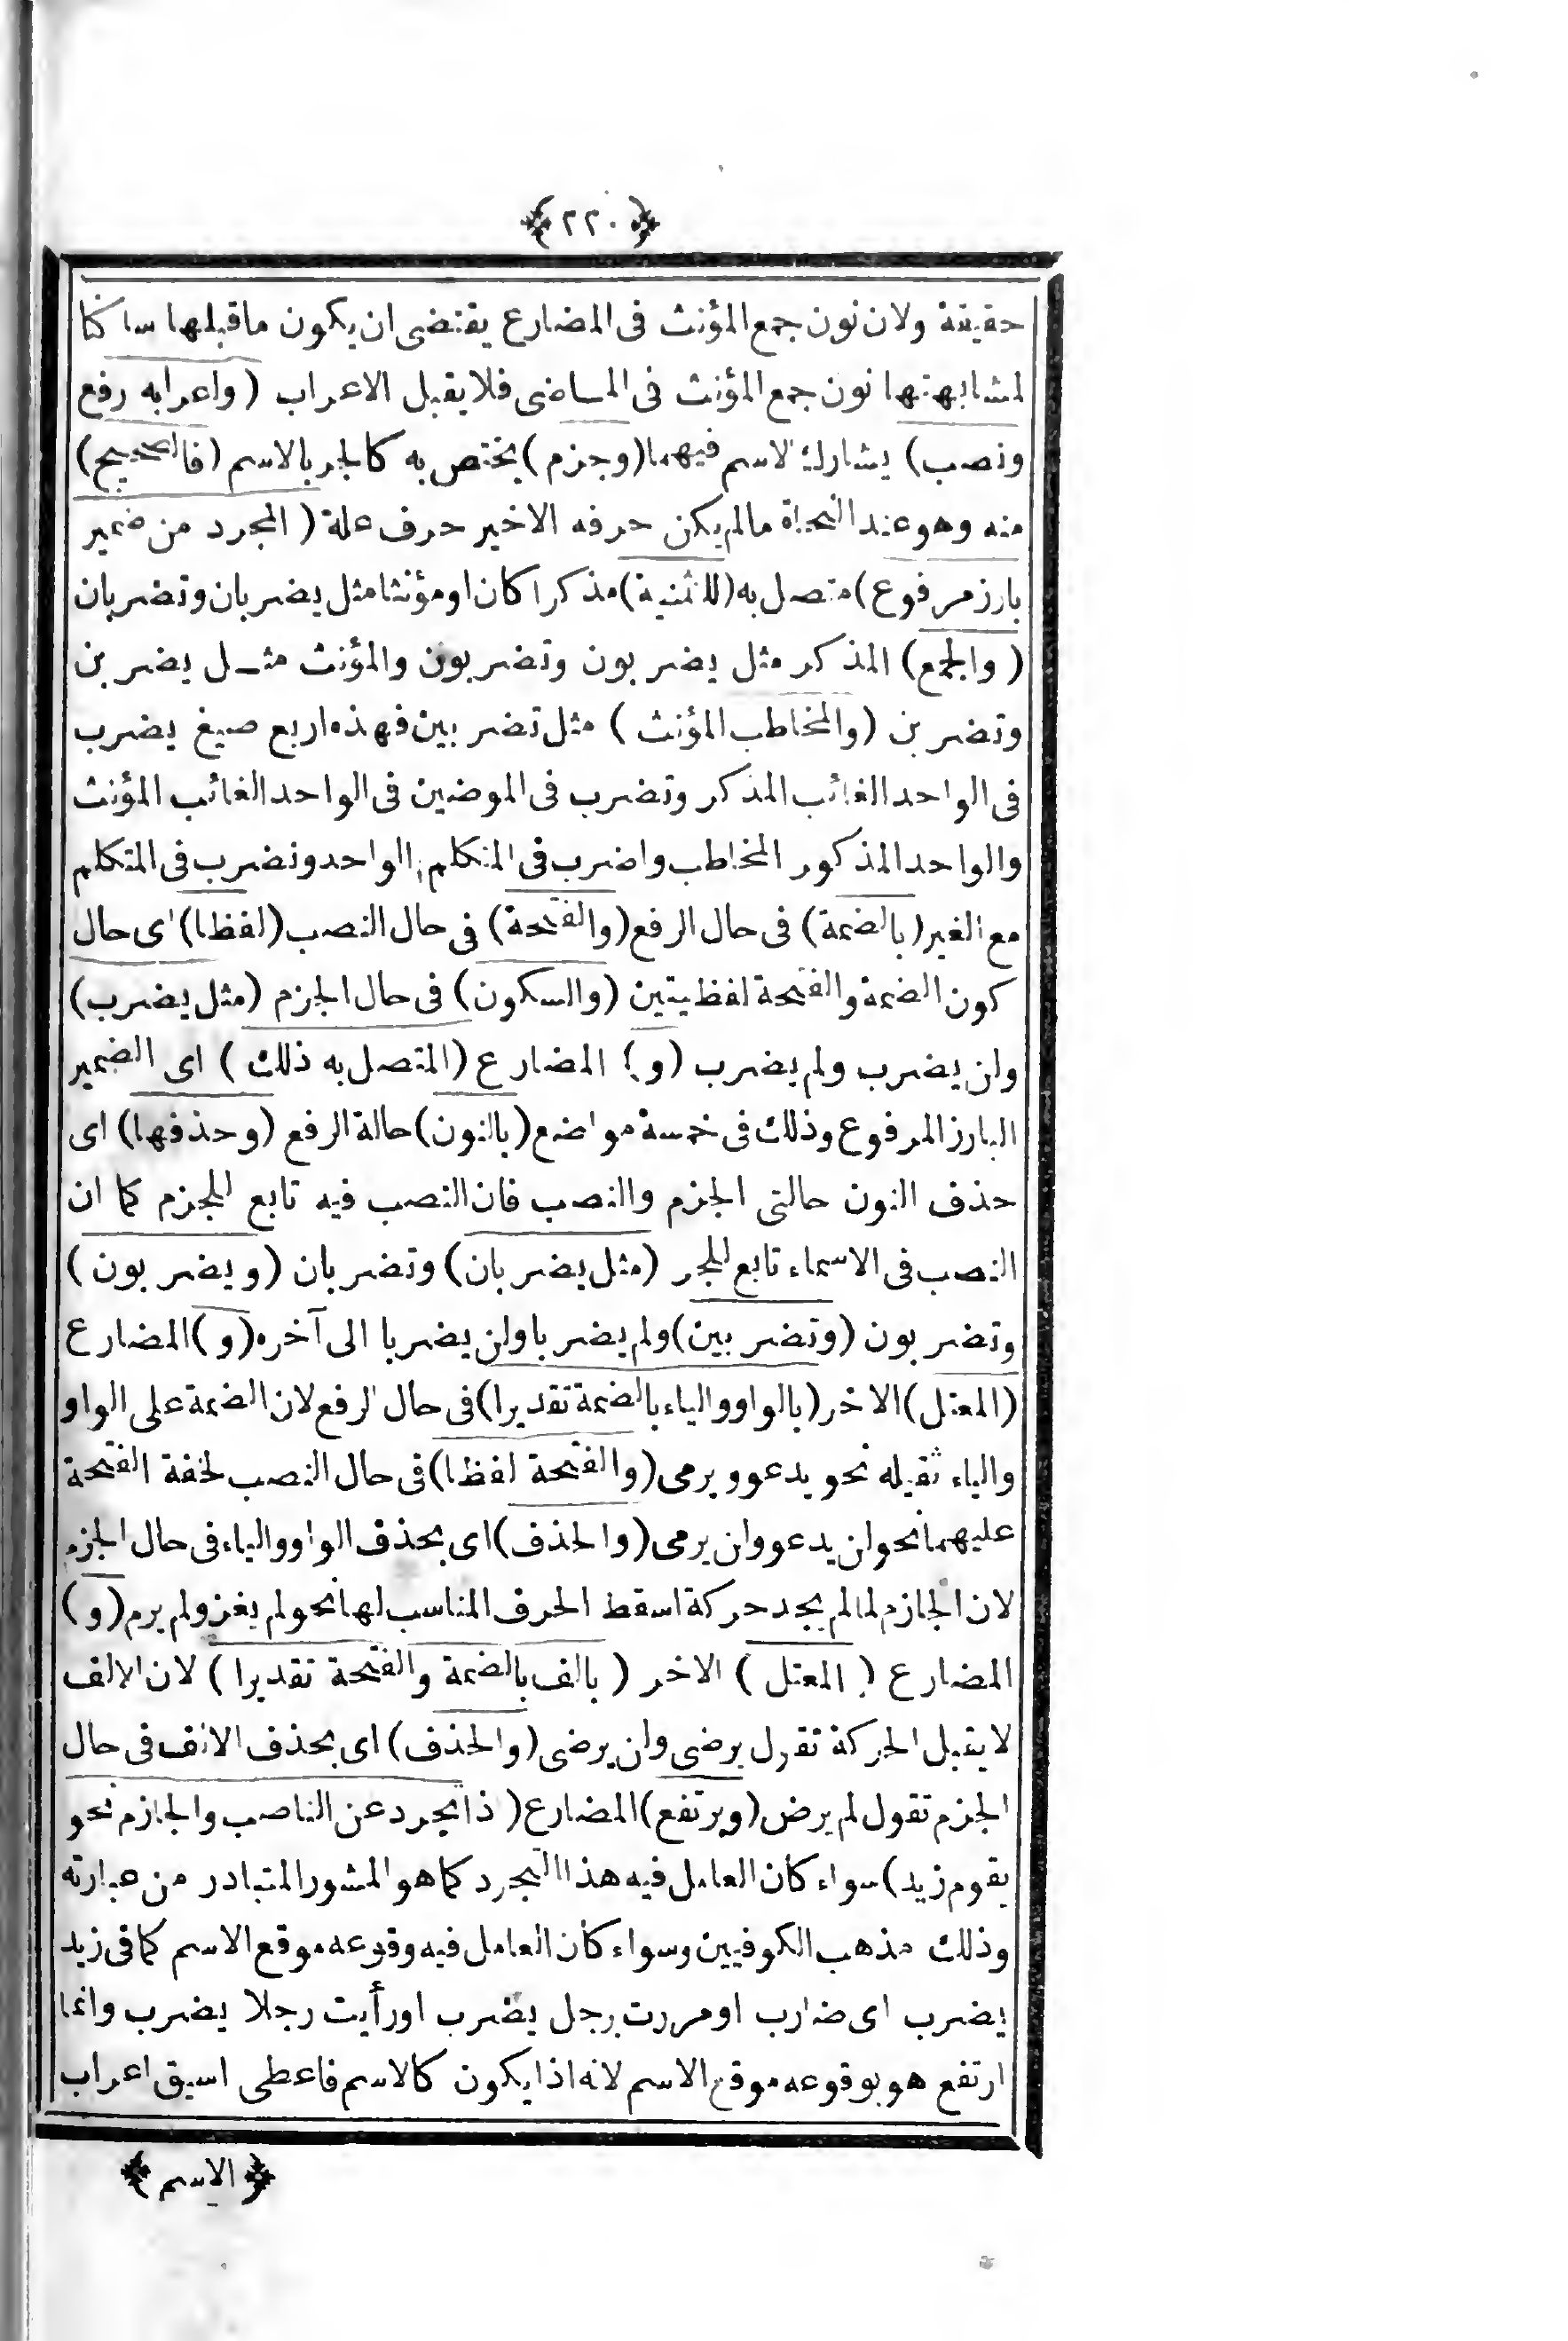 ﴿٢٢٠﴾
حقيقة ولان نون جمع المؤنث فى المضارع يقتضى ان يكون ماقبلها ساكنا
لمشابهتها نون جمع المؤنث فى الماضى فلا يقبل الاعراب ( واعرابه رفع
ونصب) يشارك الاسم فيهما (وجزم) يختص به كالجر بالاسم (فالصحيح)
منه وهو عند النحاة مالم يكن حرفه الاخير حرف علة ( المجرد من ضمير
بارز مرفوع) متصل به (للتثنية) مذكرا كان او مؤنثا مثل يضربان وتضربان
( والجمع) المذكر مثل يضربون وتضربون والمؤنث مثل يضربن
وتضربن (والمخاطب المؤنث ) مثل تضربين فهذه اربع صيغ يضرب
فى الواحد الغائب المذكر وتضرب فى الموضين فى الواحد الغائب المؤنث
والواحد المذكور المخاطب واضرب فى المتكلم الواحد ونضرب فى المتكلم
مع الغير (بالضمة) فى حال الرفع (والفتحة) فى حال النصب (لفظا) اى حال
كون الضمة والفتحة لفظيتين (والسكون) فى حال الجزم (مثل يضرب)
ولن يضرب ولم يضرب (و) المضارع (المتصل به ذلك ) اى الضمير
البارز المرفوع وذلك فى خمسة مواضع (بالنون) حالة الرفع (وحذفها) اى
حذف النون حالتى الجزم والنصب فان النصب فيه تابع للجزم كما ان
النصب فى الاسماء تابع للجر (مثل يضربان) وتضربان (ويضربون )
وتضربون (وتضربين) ولم يضربا ولن يضربا الى آخره (و) المضارع
(المعتل) الاخر (بالواو والياء بالضمة تقديرا) فى حال الرفع لان الضمة على الواو
والياء ثقيله نحو يدعو ويرمى (والفتحة لفظا) فى حال النصب لخفة الفتحة
عليهما نحو لن يدعو ولن يرمى (والحذف) اى بحذف الواو والياء فى حال الجزم
لان الجازم لما لم يجد حركة اسقط الحرف المناسب لها نحو لم يغز ولم يرم (و)
المضارع ( المعتل ) الاخر ( بالف بالضمة والفتحة تقديرا ) لان الالف
لا يقبل الحركة تقول يرضى ولن يرضى (والحذف) اى بحذف الالف فى حال
الجزم تقول لم يرض (ويرتفع) المضارع (اذا تجرد عن الناصب والجازم نحو
يقوم زيد) سواء كان العامل فيه هذا التجرد كما هو المشور المتبادر من عبارته
وذلك مذهب الكوفيين وسواء كان العامل فيه وقوعه موقع الاسم كما فى زيد
يضرب اى ضارب او مررت برجل يضرب او رأيت رجلا يضرب وانما
ارتفع هو بوقوعه موقع الاسم لانه اذا يكون كالاسم فاعطى اسبق اعراب
﴿الاسم﴾